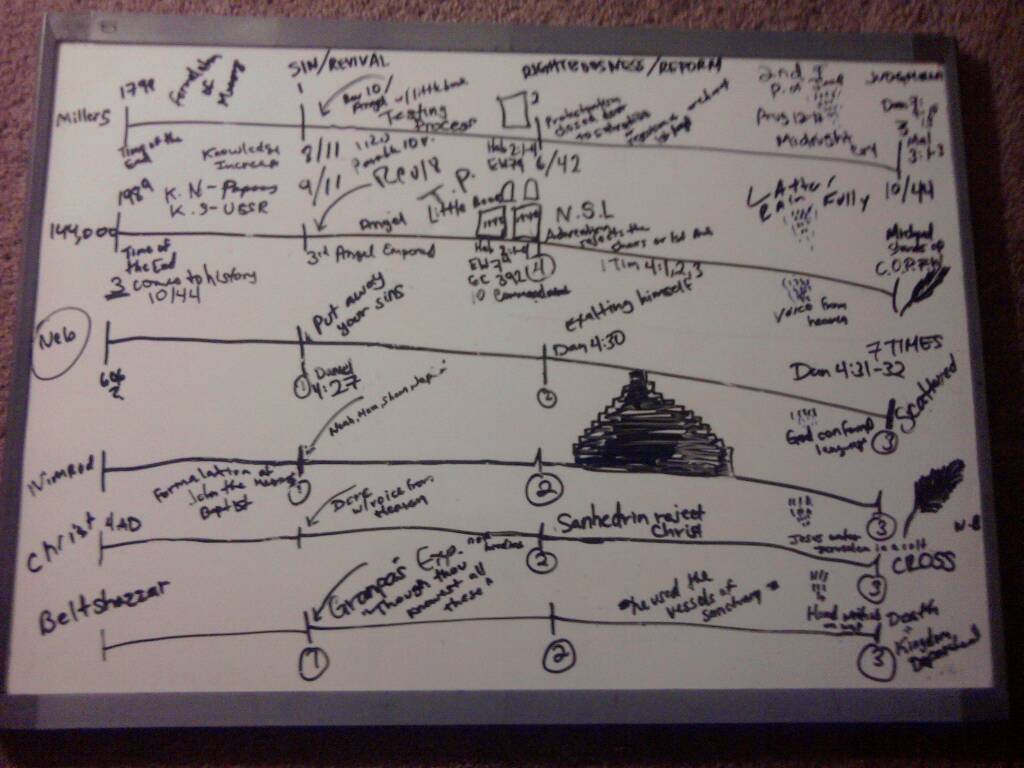 SIN/REVIVAL
RIGHTEOUSNESS/REFORM
JUDGMENT
1798
Formalization of Message
Rev 10/
Angel w/little book
Testing
Process
2nd
Dan 7:
Millers
Time of the End
Knowledge
Increase
8/11
Hab 2:1-4
EW 74
6/42
Midnight cry
3
Mal
3:1-3
1989
K.N-Papacy
K.S-USSR
9/11
Rev 18
T.P.
Little Book
N.S.L
Latter
Rain Fully
10/44
144,000
Angel
3rd Angel Empowered
Hab 2:1-4
EW 74
GC 392
10 Commandments
4
1 Tim 4:1,2,3
Michael
stands up
C.O.P.
Time of
the End
3 comes to history
10/44
Put away
your sins
exalting himself
Voice from
heaven
Neb
606
1
Daniel
4:27
Dan 4:30
2
7 TIMES
Dan 4:31-32
Scattered
3
Noah, Ham, Shem, Japheth
God confound
languages
Nimrod
1
2
3
Formalization of
John the
Baptist
Dove
w/voice from
Heaven
Sanhedrin reject
Christ
N.B
Christ 4AD
2
Jesus enter
Jerusalem on a colt
CROSS
3
Beltshazzar
Grampas Exp.
"Though thou
knowest all
these"
He used the
vessels of
sanctuary
Hand
Death
+
Kingdom
Departed
1
2
3